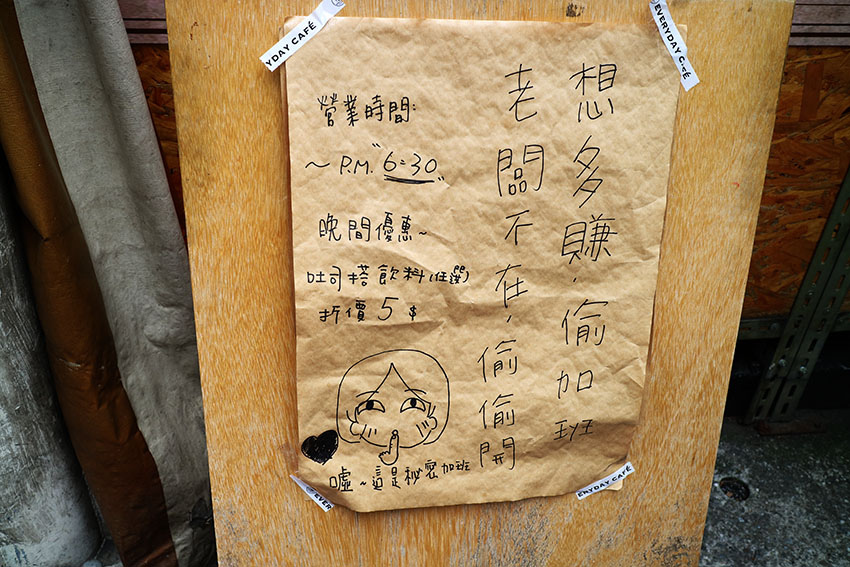 想多賺,偷加班
老闆不在,偷偷開
營業時間:
~ P.M. "6:30"
晚間優惠~
吐司搭飲料(任選)
折價 5 $
噓~這是秘密加班
YDAY CAFÉ
EVERYDAY CAFÉ
EVER
ERYDAY CAFÉ